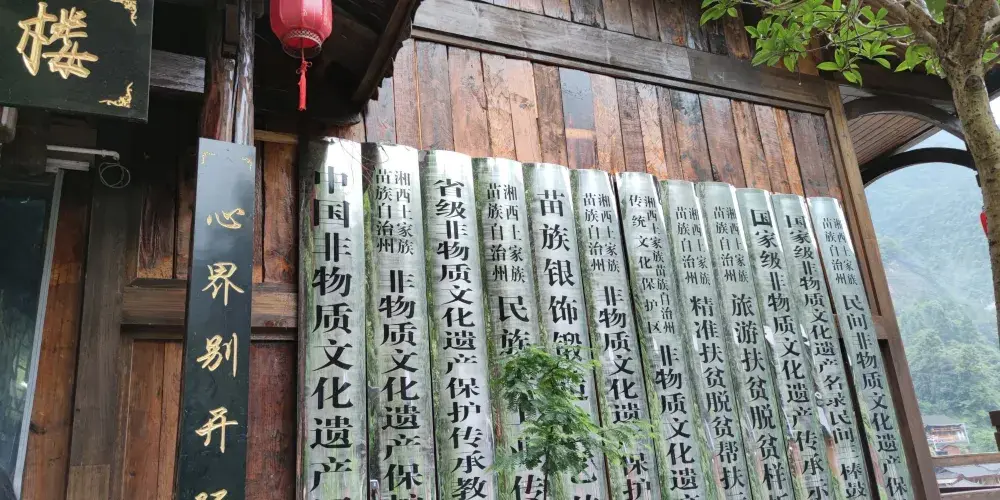 楼
心界别开
中国非物质文化遗产
湘西土家族
苗族自治州
非物质文化遗产保
省级非物质文化遗产保护传承教
湘西土家族
苗族自治州
民族
苗族银饰锻
湘西土家族
苗族自治州
非物质文化遗
保
湘西土家族苗族自治州
传统文化保护区
非物质文化遗
湘西土家族
苗族自治州
精准扶贫脱贫帮扶
湘西土家族
苗族自治州
旅游扶贫脱贫样
国家级非物质文化遗产传承
国家级非物质文化遗产名录民间
湘西土家族
苗族自治州
民间非物质文化遗保